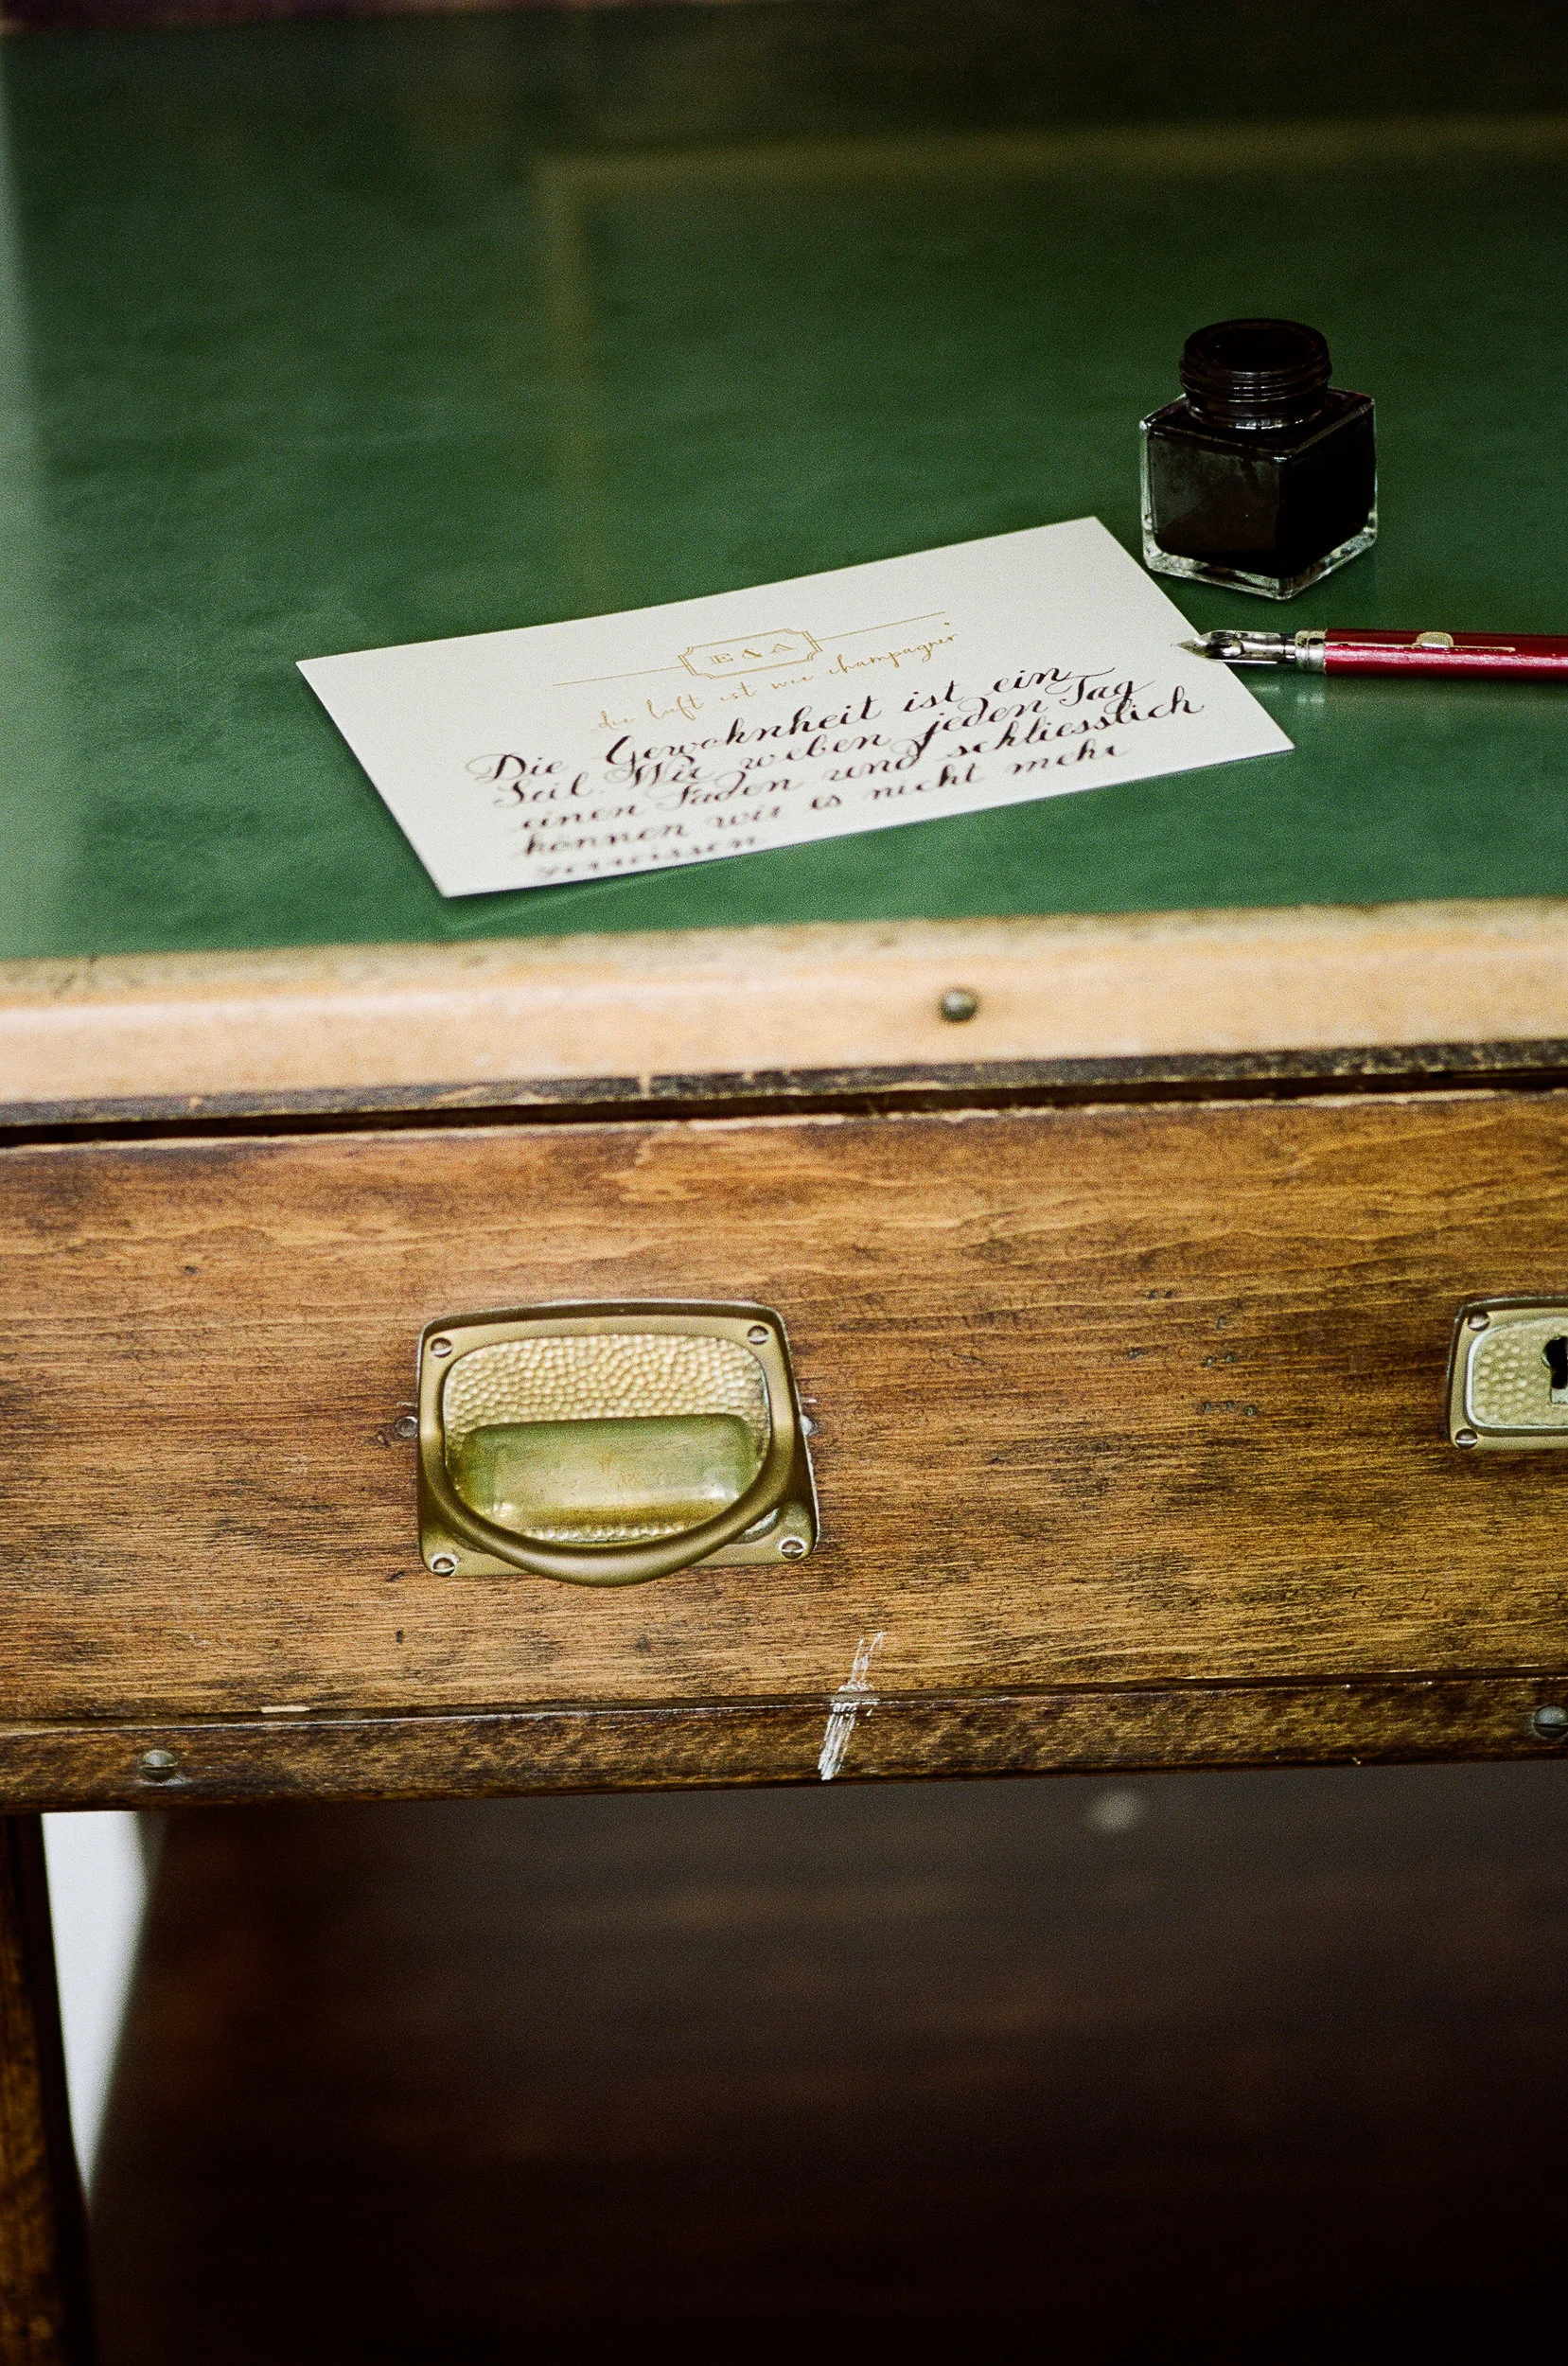 E & A
die luft ist wie champagner
Die Gewohnheit ist ein
Seil. Wir weben jeden Tag
einen Faden und schliesslich
können wir es nicht mehr
zerreissen